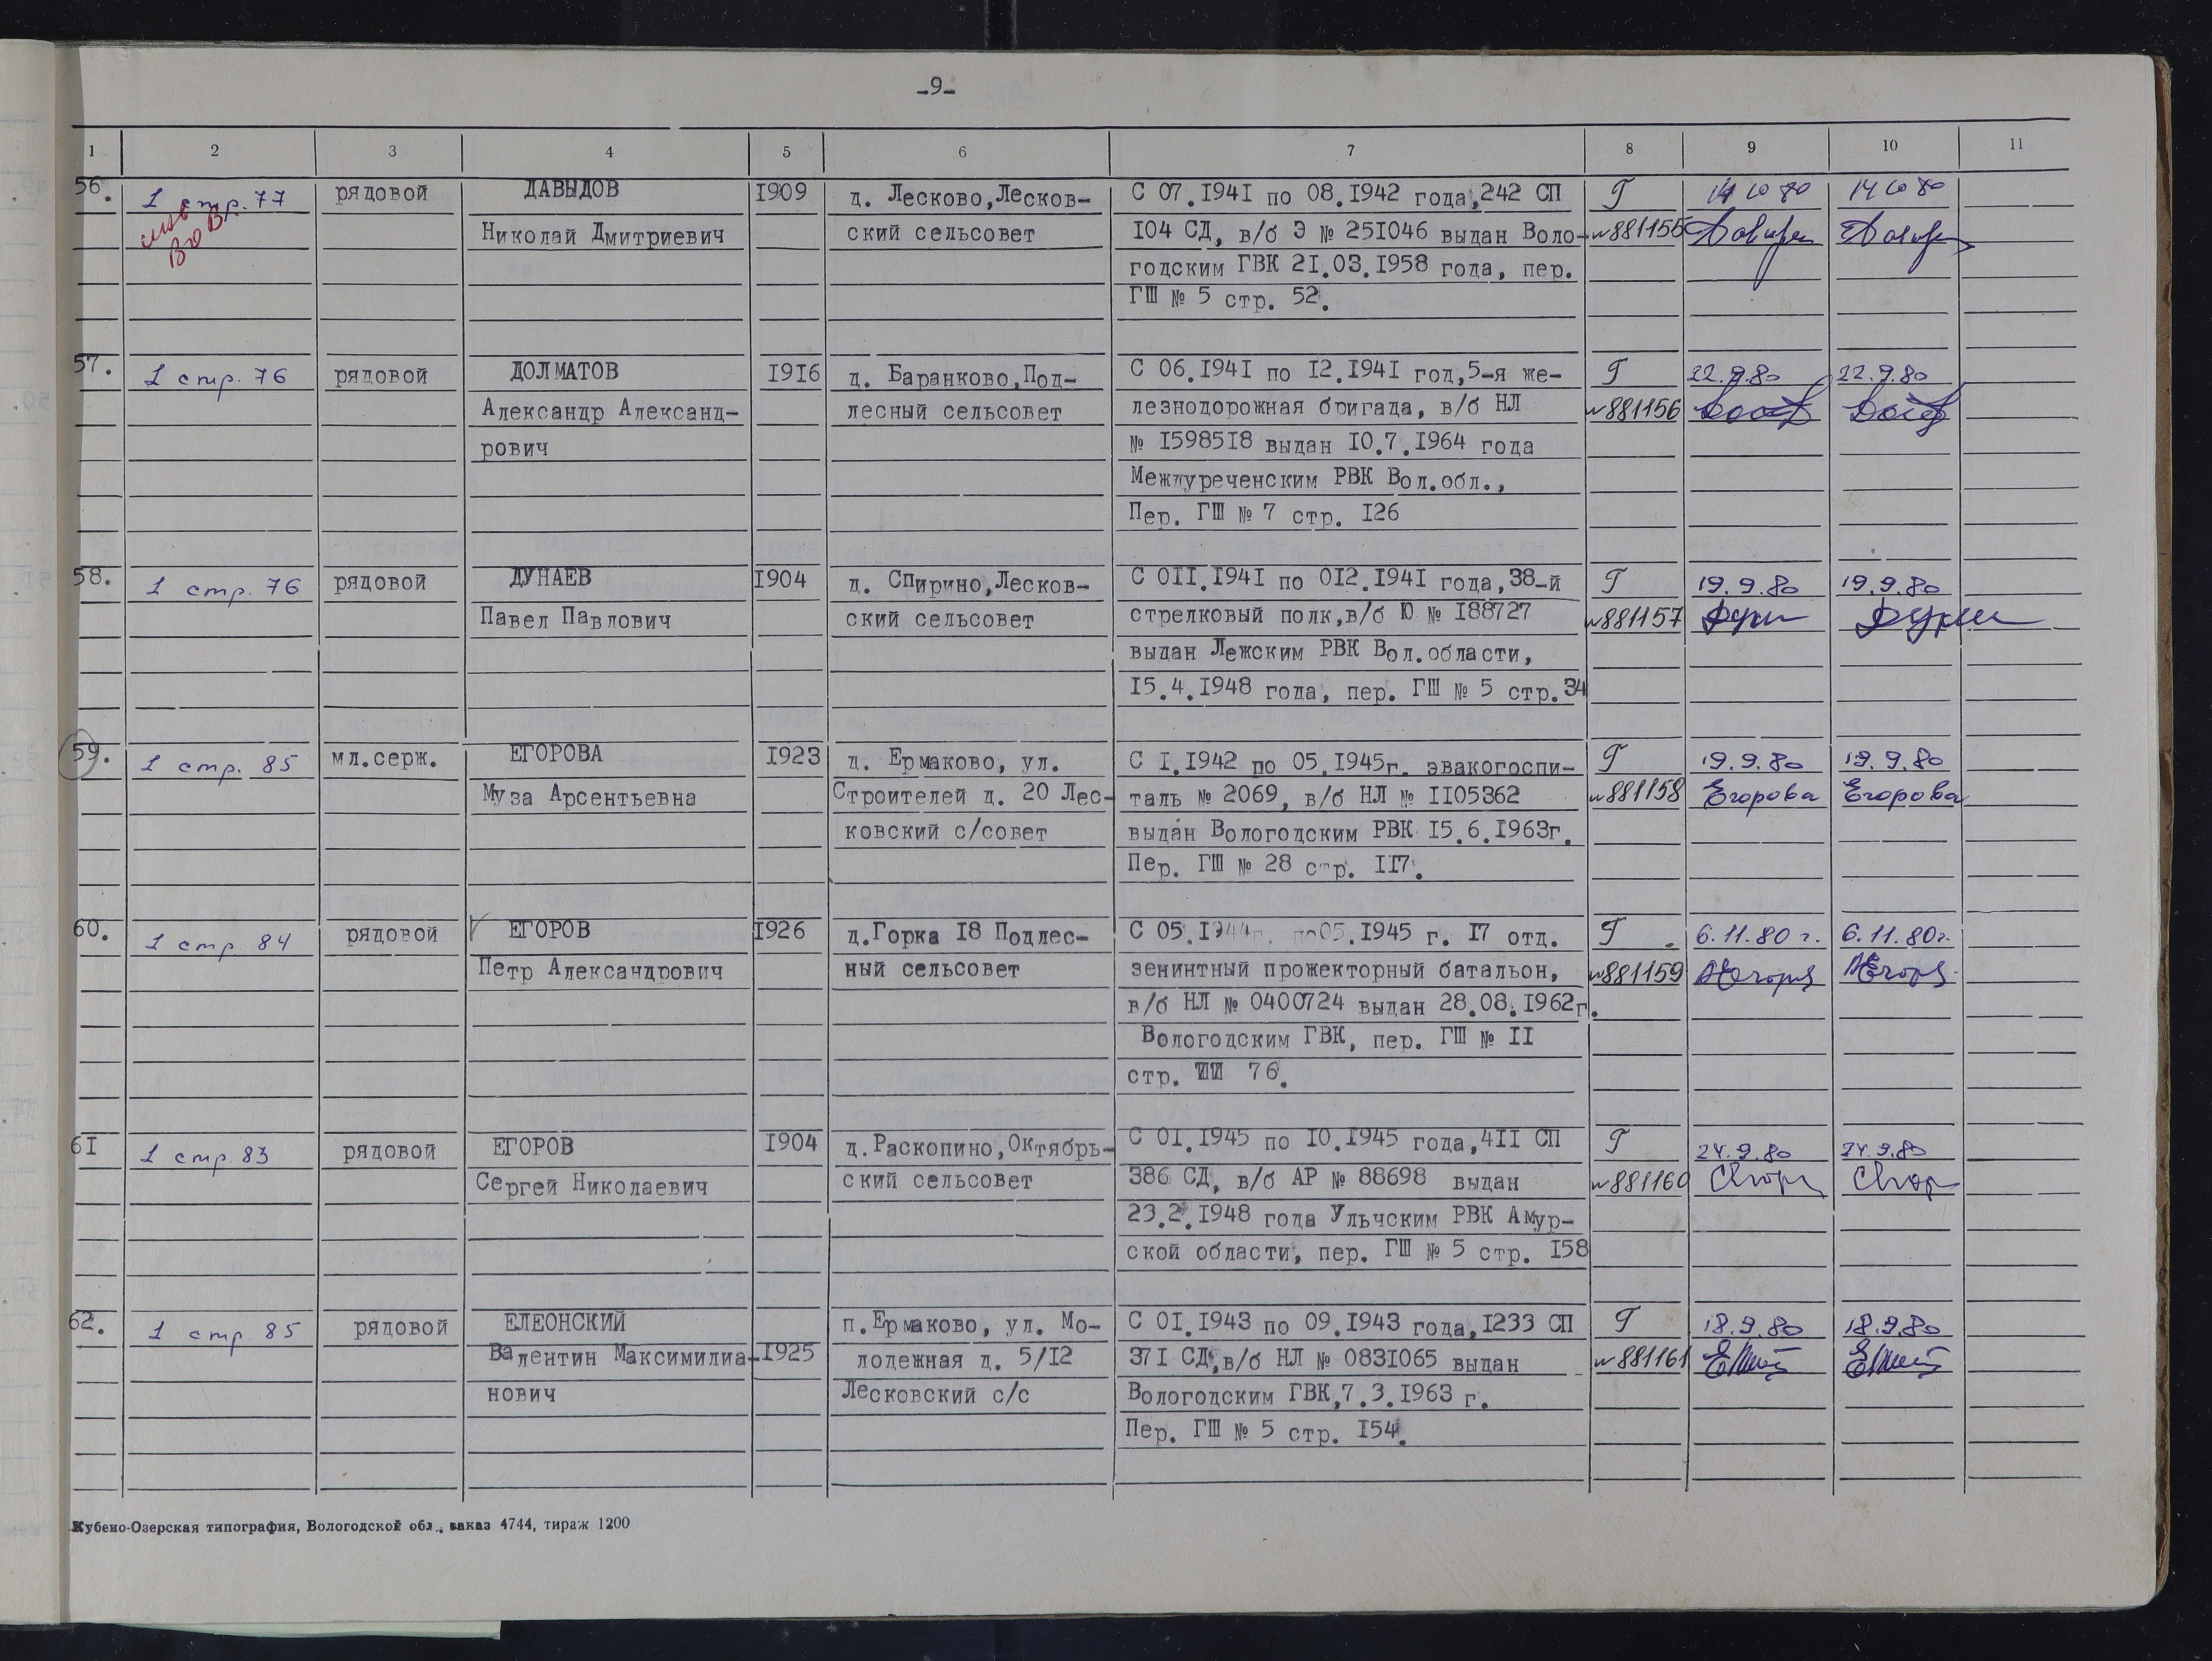 -9-
1 2 3 4 5 6 7 8 9 10 11
56. 1 стр. 77 рядовой ДАВЫДОВ 1909 д. Лесково,Лесков- С 07.1941 по 08.1942 года,242 СП Г 14 10 80 14 10 80
инв Николай Дмитриевич ский сельсовет 104 СД, в/б Э № 251046 выдан Воло- №881155
ВОВ годским ГВК 21.03.1958 года, пер.
ГШ № 5 стр. 52.
57. 1 стр. 76 рядовой ДОЛМАТОВ 1916 д. Баранково,Под- С 06.1941 по 12.1941 год,5-я же- Г 22.9.80 22.9.80
Александр Александ- лесный сельсовет лезнодорожная бригада, в/б НЛ №881156
рович № 1598518 выдан 10.7.1964 года
Междуреченским РВК Вол.обл.,
Пер. ГШ № 7 стр. 126
58. 1 стр. 76 рядовой ДУНАЕВ 1904 д. Спирино,Лесков- С 011.1941 по 012.1941 года,38-й Г 19.9.80 19.9.80
Павел Павлович ский сельсовет стрелковый полк,в/б Ю № 188727 №881157
выдан Лежским РВК Вол.области,
15.4.1948 года, пер. ГШ № 5 стр.34
59. 1 стр. 85 мл.серж. ЕГОРОВА 1923 д. Ермаково, ул. С 1.1942 по 05.1945г. эвакогоспи- Г 19.9.80 19.9.80
Муза Арсентьевна Строителей д. 20 Лес- таль № 2069, в/б НЛ № 1105362 №881158 Егорова Егорова
ковский с/совет выдан Вологодским РВК 15.6.1963г.
Пер. ГШ № 28 стр. 117.
60. 1 стр. 84 рядовой ЕГОРОВ 1926 д.Горка 18 Подлес- С 05.1944г. по05.1945 г. 17 отд. Г 6.11.80 г. 6.11.80г.
Петр Александрович ный сельсовет зенинтный прожекторный батальон, №881159
в/б НЛ № 0400724 выдан 28.08.1962г.
Вологодским ГВК, пер. ГШ № 11
стр. 76.
61 1 стр. 83 рядовой ЕГОРОВ 1904 д.Раскопино,Октябрь- С 01.1945 по 10.1945 года,411 СП Г 24.9.80 24.9.80
Сергей Николаевич ский сельсовет 386 СД, в/б АР № 88698 выдан №881160
23.2.1948 года Ульчским РВК Амур-
ской области, пер. ГШ № 5 стр. 158
62. 1 стр. 85 рядовой ЕЛЕОНСКИЙ п.Ермаково, ул. Мо- С 01.1943 по 09.1943 года,1233 СП Г 18.9.80 18.9.80
Валентин Максимилиа- 1925 лодежная д. 5/12 371 СД,в/б НЛ № 0831065 выдан №881161
нович Лесковский с/с Вологодским ГВК,7.3.1963 г.
Пер. ГШ № 5 стр. 154.
Кубено-Озерская типография, Вологодской обл., заказ 4744, тираж 1200